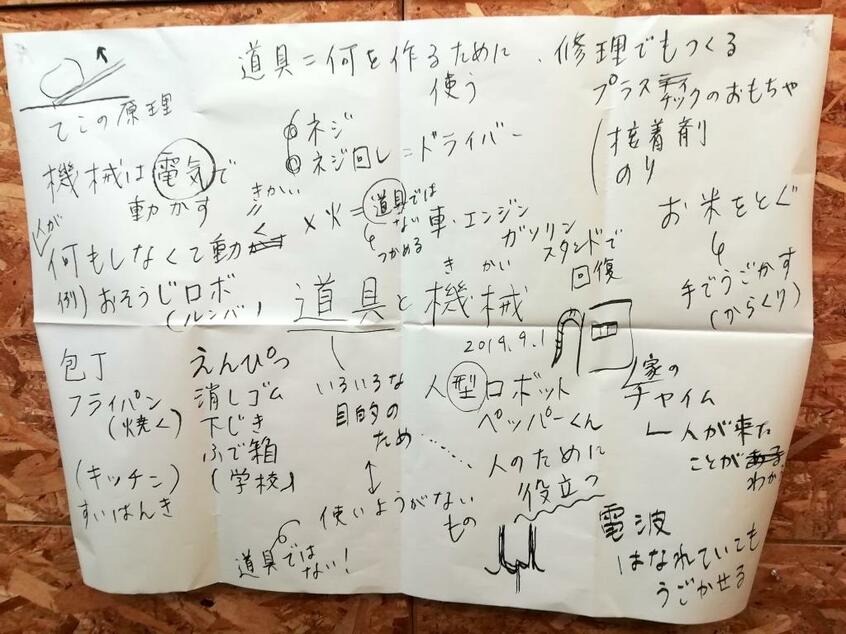 道具=何を作るために
使う
、修理でもつくる
プラスチックのおもちゃ
接着剤
のり
てこの原理
ネジ
ネジ回し=ドライバー
機械は電気で
動かす
きかい
く
×火=道具では
ない
つかめる
車・エンジン
ガソリン
スタンドで
回復
お米をとぐ
手でうごかす
(からくり)
人が
何もしなくて動
例)おそうじロボ
(ルンバ)
きかい
道具と機械
2019.9.1
包丁
フライパン
(焼く)
(キッチン)
すいはんき
えんぴつ
消しゴム
下じき
ふで箱
(学校)
いろいろな
目的の
ため
使いようがない
もの
道具では
ない!
人型ロボット
ペッパーくん
人のために
役立つ
家の
チャイム
人が来た
ことが
わか
電波
はなれていても
うごかせる